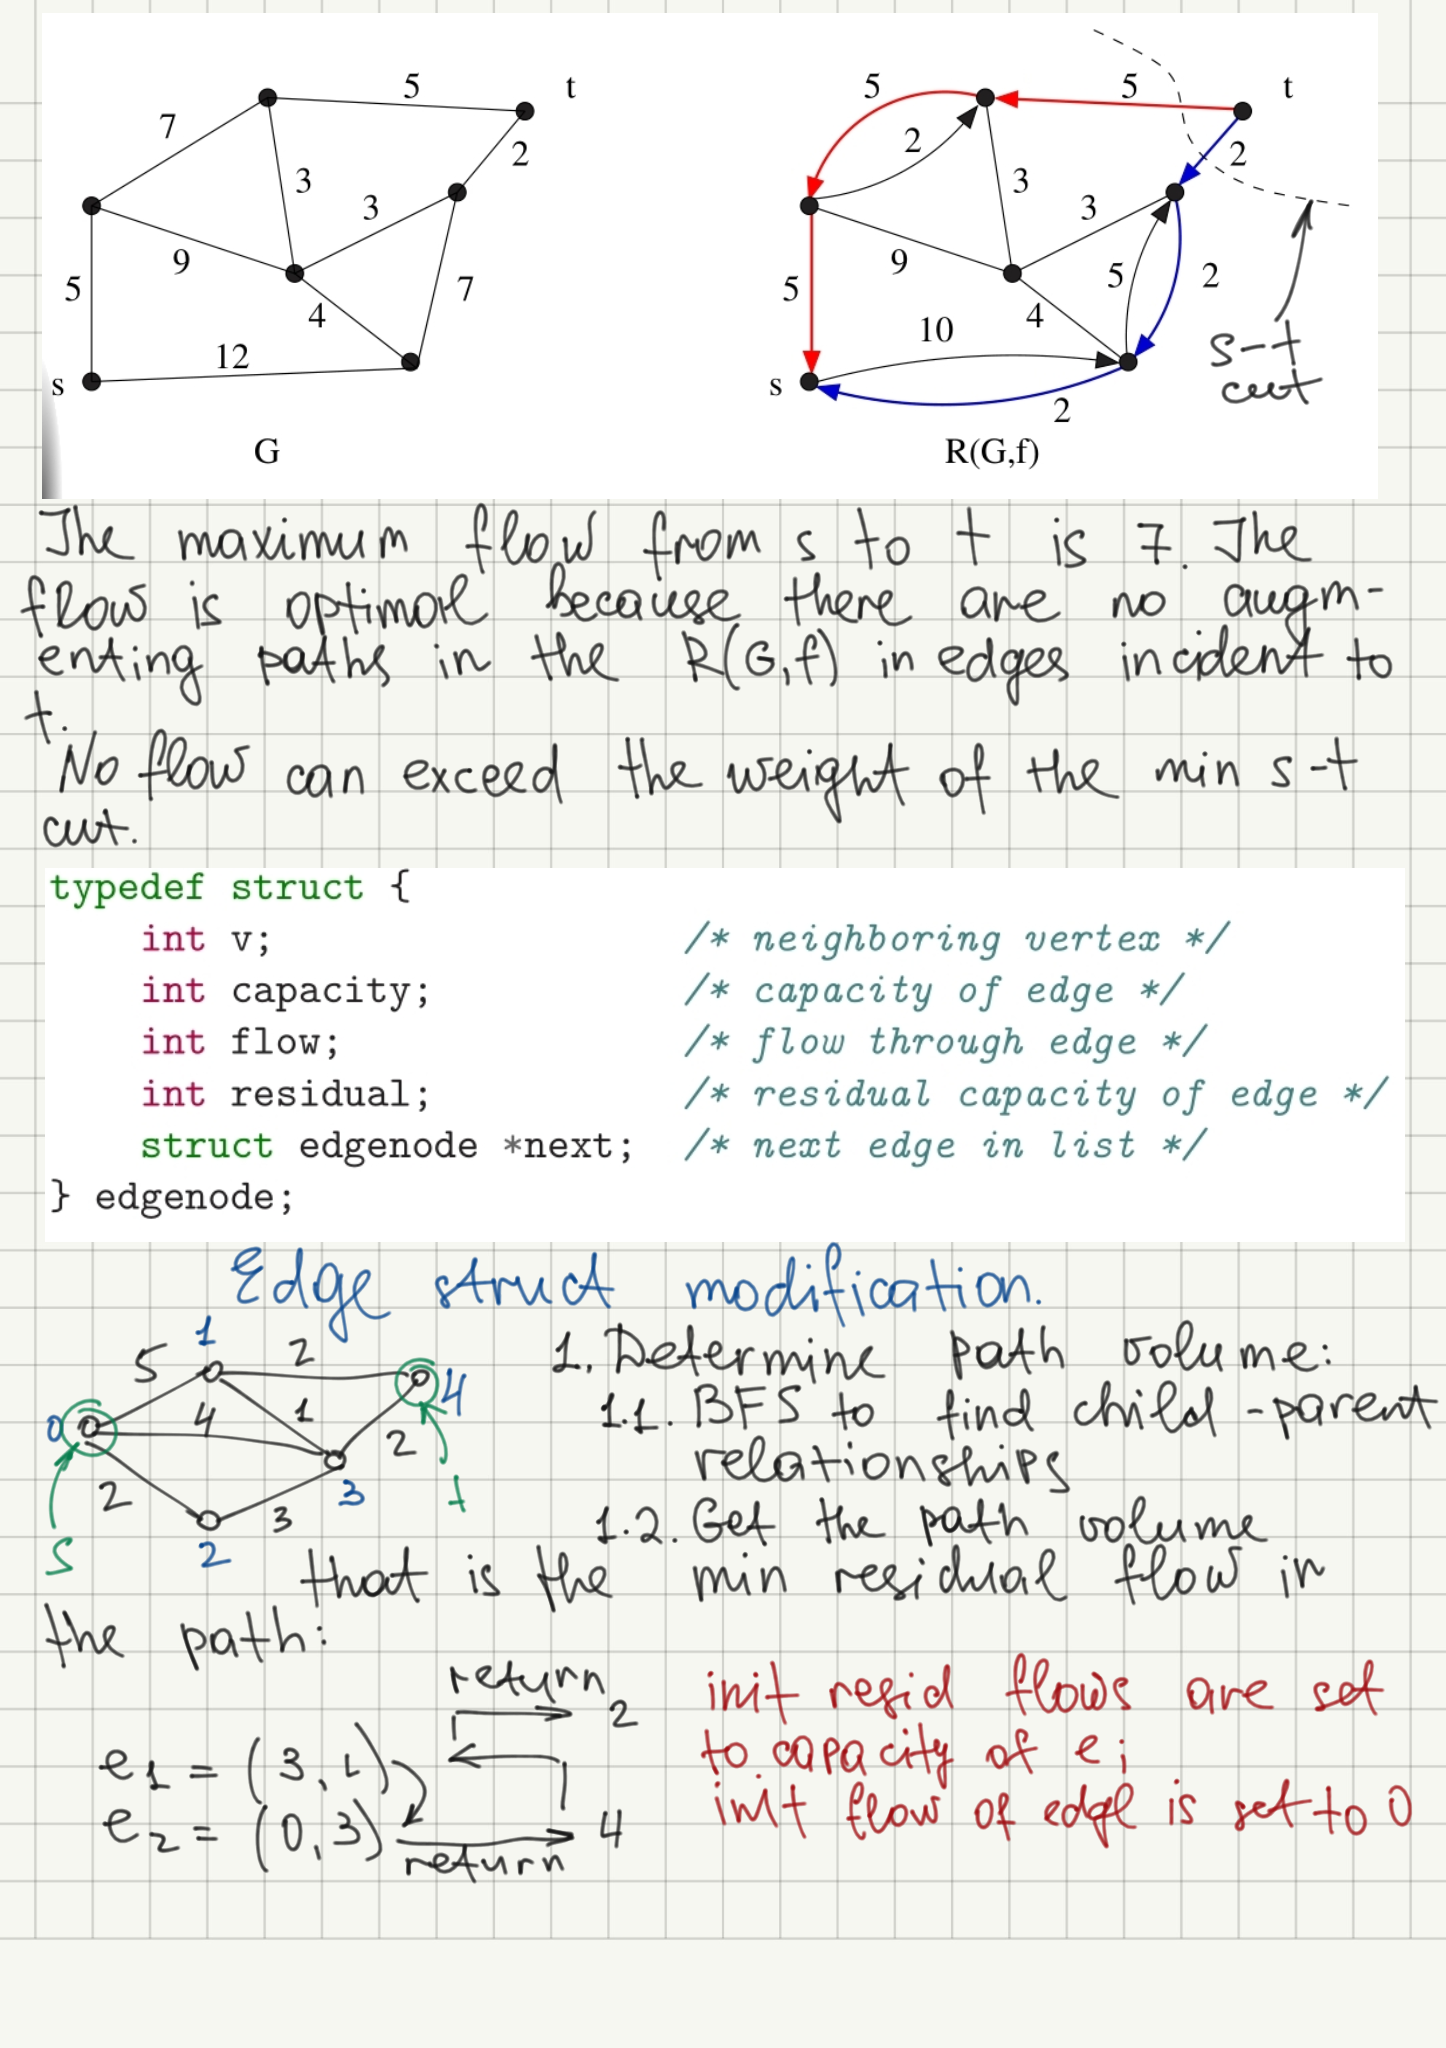 5 t 5 t
7 2 2 2
3 3 3 3
9 9
5 7 5 5 2
4 4
12 10
s s
2
G R(G,f)
s-t
cut
The maximum flow from s to t is 7. The
flow is optimal because there are no augm-
enting paths in the R(G,f) in edges incident to
t.
No flow can exceed the weight of the min s-t
cut.
typedef struct {
int v; /* neighboring vertex */
int capacity; /* capacity of edge */
int flow; /* flow through edge */
int residual; /* residual capacity of edge */
struct edgenode *next; /* next edge in list */
} edgenode;
Edge struct modification.
1
5 2
4
0 4 1
2
2 3 3
2
s t
1. Determine path volume:
1.1. BFS to find child-parent
relationships
1.2. Get the path volume
that is the min residual flow in
the path:
return 2
e1 = (3, 4)
e2 = (0, 3) 4
return
init resid flows are set
to capacity of ei
init flow of edge is set to 0